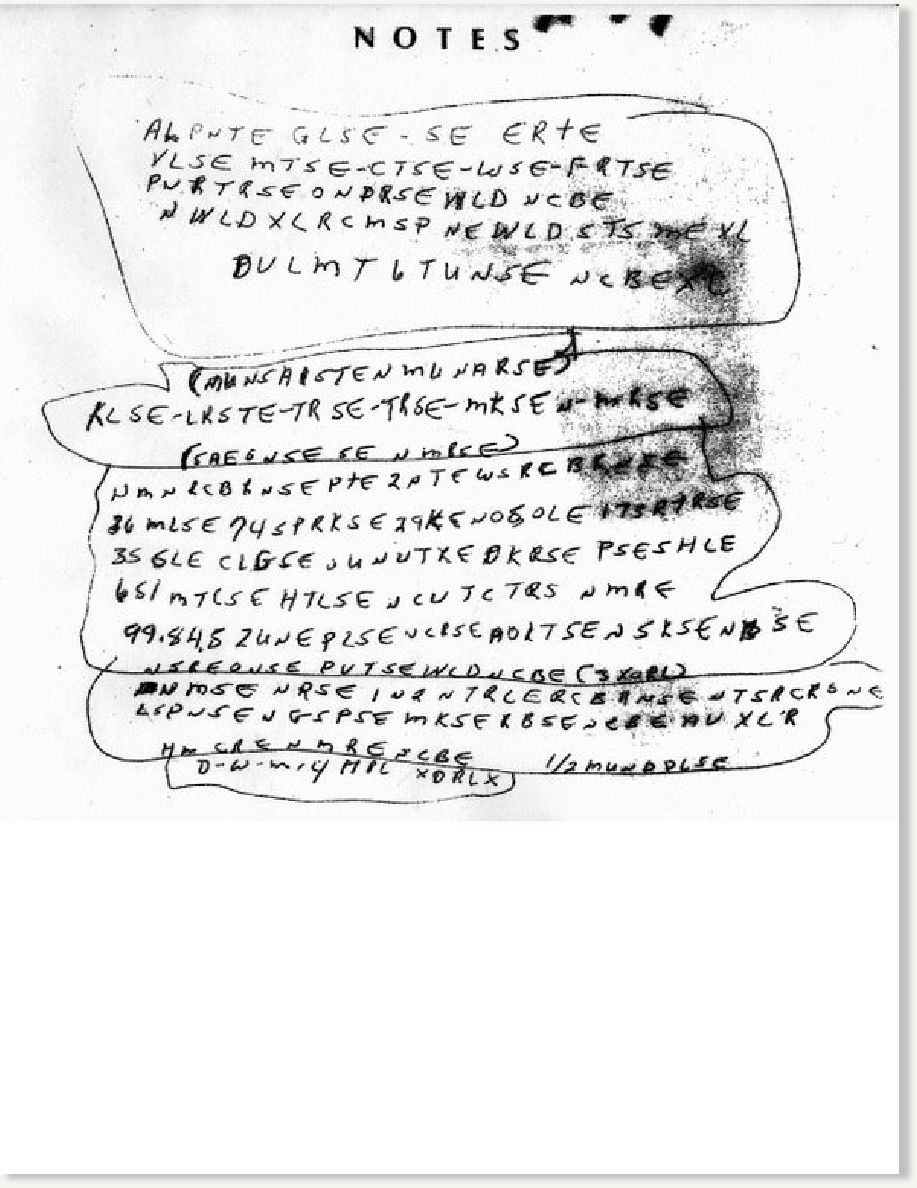 NOTES
ALPNTE GLSE - SE ERTE
VLSE MTSE-CTSE-WSE-FRTSE
PURTRSE ONDRSE WLD NCBE
N WLD XLRCMSP NE WLD STS ME XL
DULMT 6 TUNSE NCBE XC
(MUNSAISTEN MUNARSE)
KLSE-LRSTE-TRSE-TRSE-MKSEN-MRSE
(SAE6NSE SE N MRSE)
NMNRCBRNSE PTE 2 PTE WSRCBRNSE
36 MLSE 74 SPRKSE 29KENOSOLE 173RTRSE
35 GLE CLGSE UUNUTXE DKRSE PSESHLE
651 MTLSE HTLSE NCUTCTRS NMRE
99.84.5 ZUNEPLSE NCRSE AOLTSE NSKSE N SE
NSREONSE PUTSE WLD NCBE (3 XORL)
NMSE NRSE INRNTRLE RCBRNSE NTSRCRBNE
LSPNSE NGSPSE MKSE RBSE NCBE AU XL'R
HM CRE NMRE NCBE 1/2 MUNDDLSE
D-W-M-Y HPL XDRLX